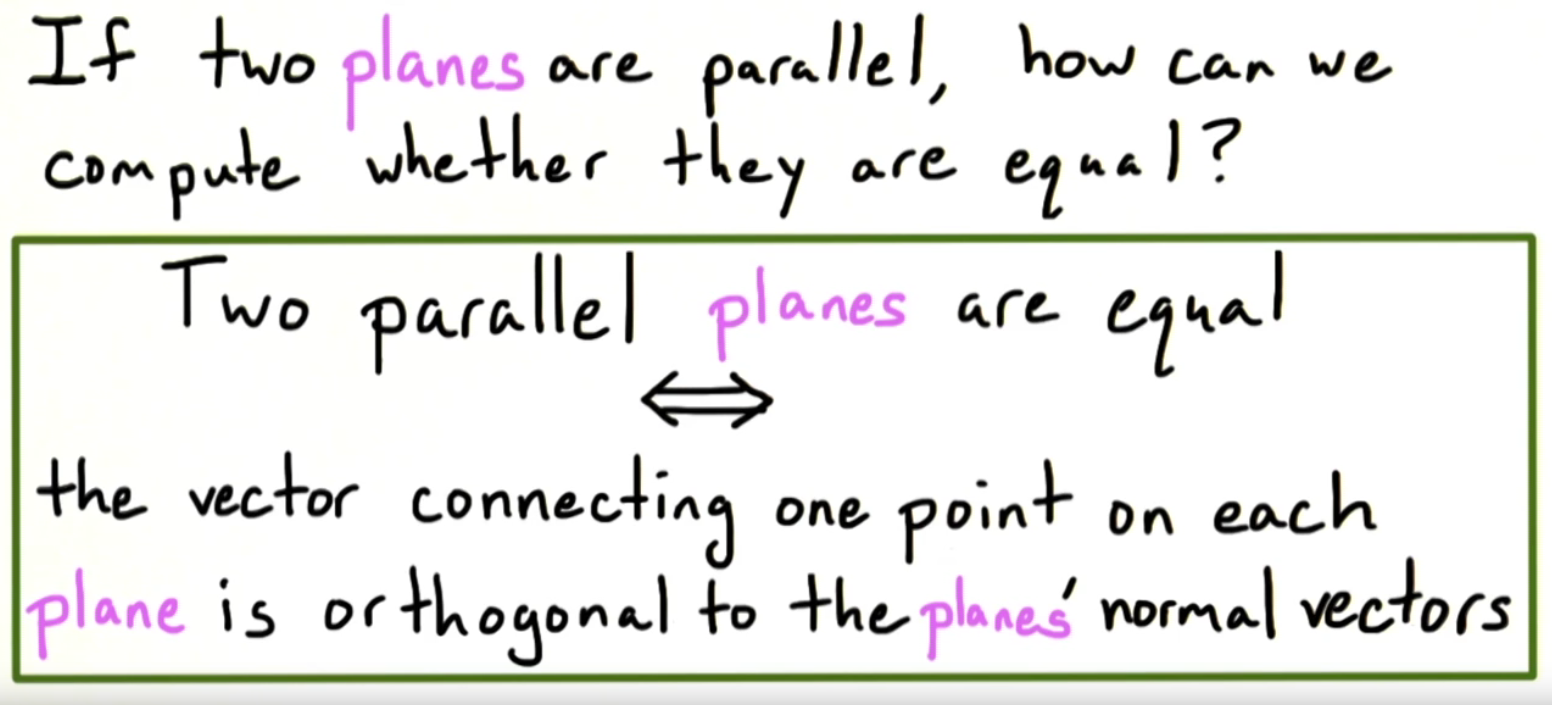 If two planes are parallel, how can we
compute whether they are equal?
Two parallel planes are equal
⟺
the vector connecting one point on each
plane is orthogonal to the planes' normal vectors